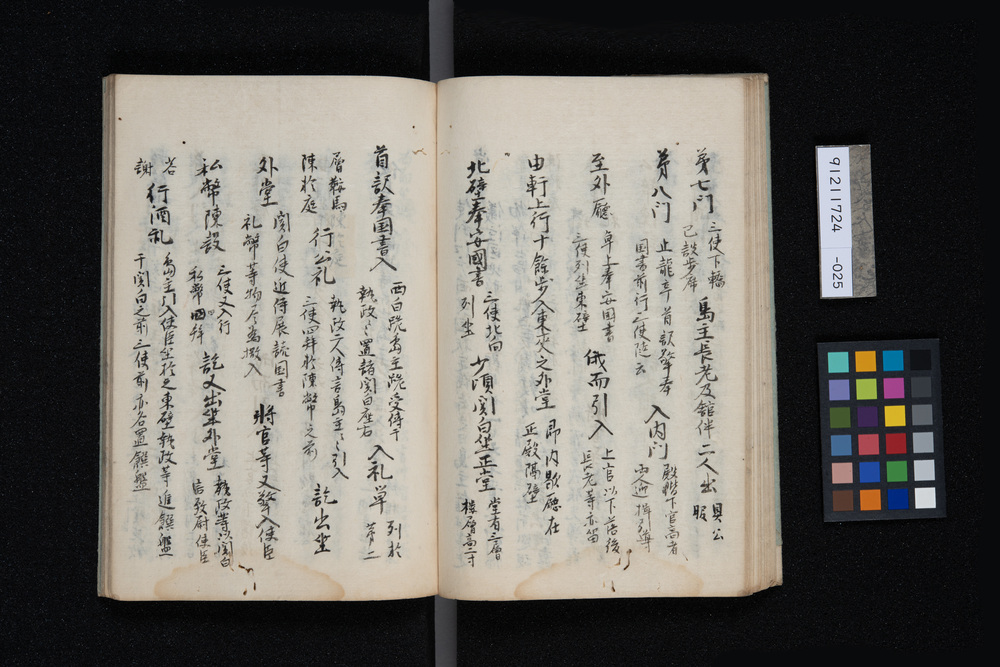 第七门 三使下轎 已設步席 島主長老及舘伴二人出 具公服
第八门 止龍亭首訳擎奉 国書前行三使随云 入内门 殿階下官高者 四人迎揖引導
至外廳 卓上奉安国書 三使列坐東壁 俄而引入 上官以下落後 長老等亦留
由軒上行十餘步入東夾之外堂 即内歇廳在 正殿隔壁
北壁奉安國書 三使北向 列坐 少頃関白坐正堂 堂有三層 楼層高二寸
首訳奉国書入 西白跪島主跪受傳于 執政々置諸関白座右 入礼单 列於 第二
層鞍馬
陳於庭 行公礼 執政六人傳言島主々引入 三使四拜於陳幣之前 訖出坐
外堂 関白使近侍展読国書 礼幣等物尽為撤入 將官等又擎入使臣
私幣陳設 三使又入行 私幣四拜 訖又出坐外堂 執政等以関白 言致尉使臣
若 行酒礼 島主引入使臣坐於之東壁執政等進饌盤
謝 于関白之前三使前亦各置饌盤
91211724 -025